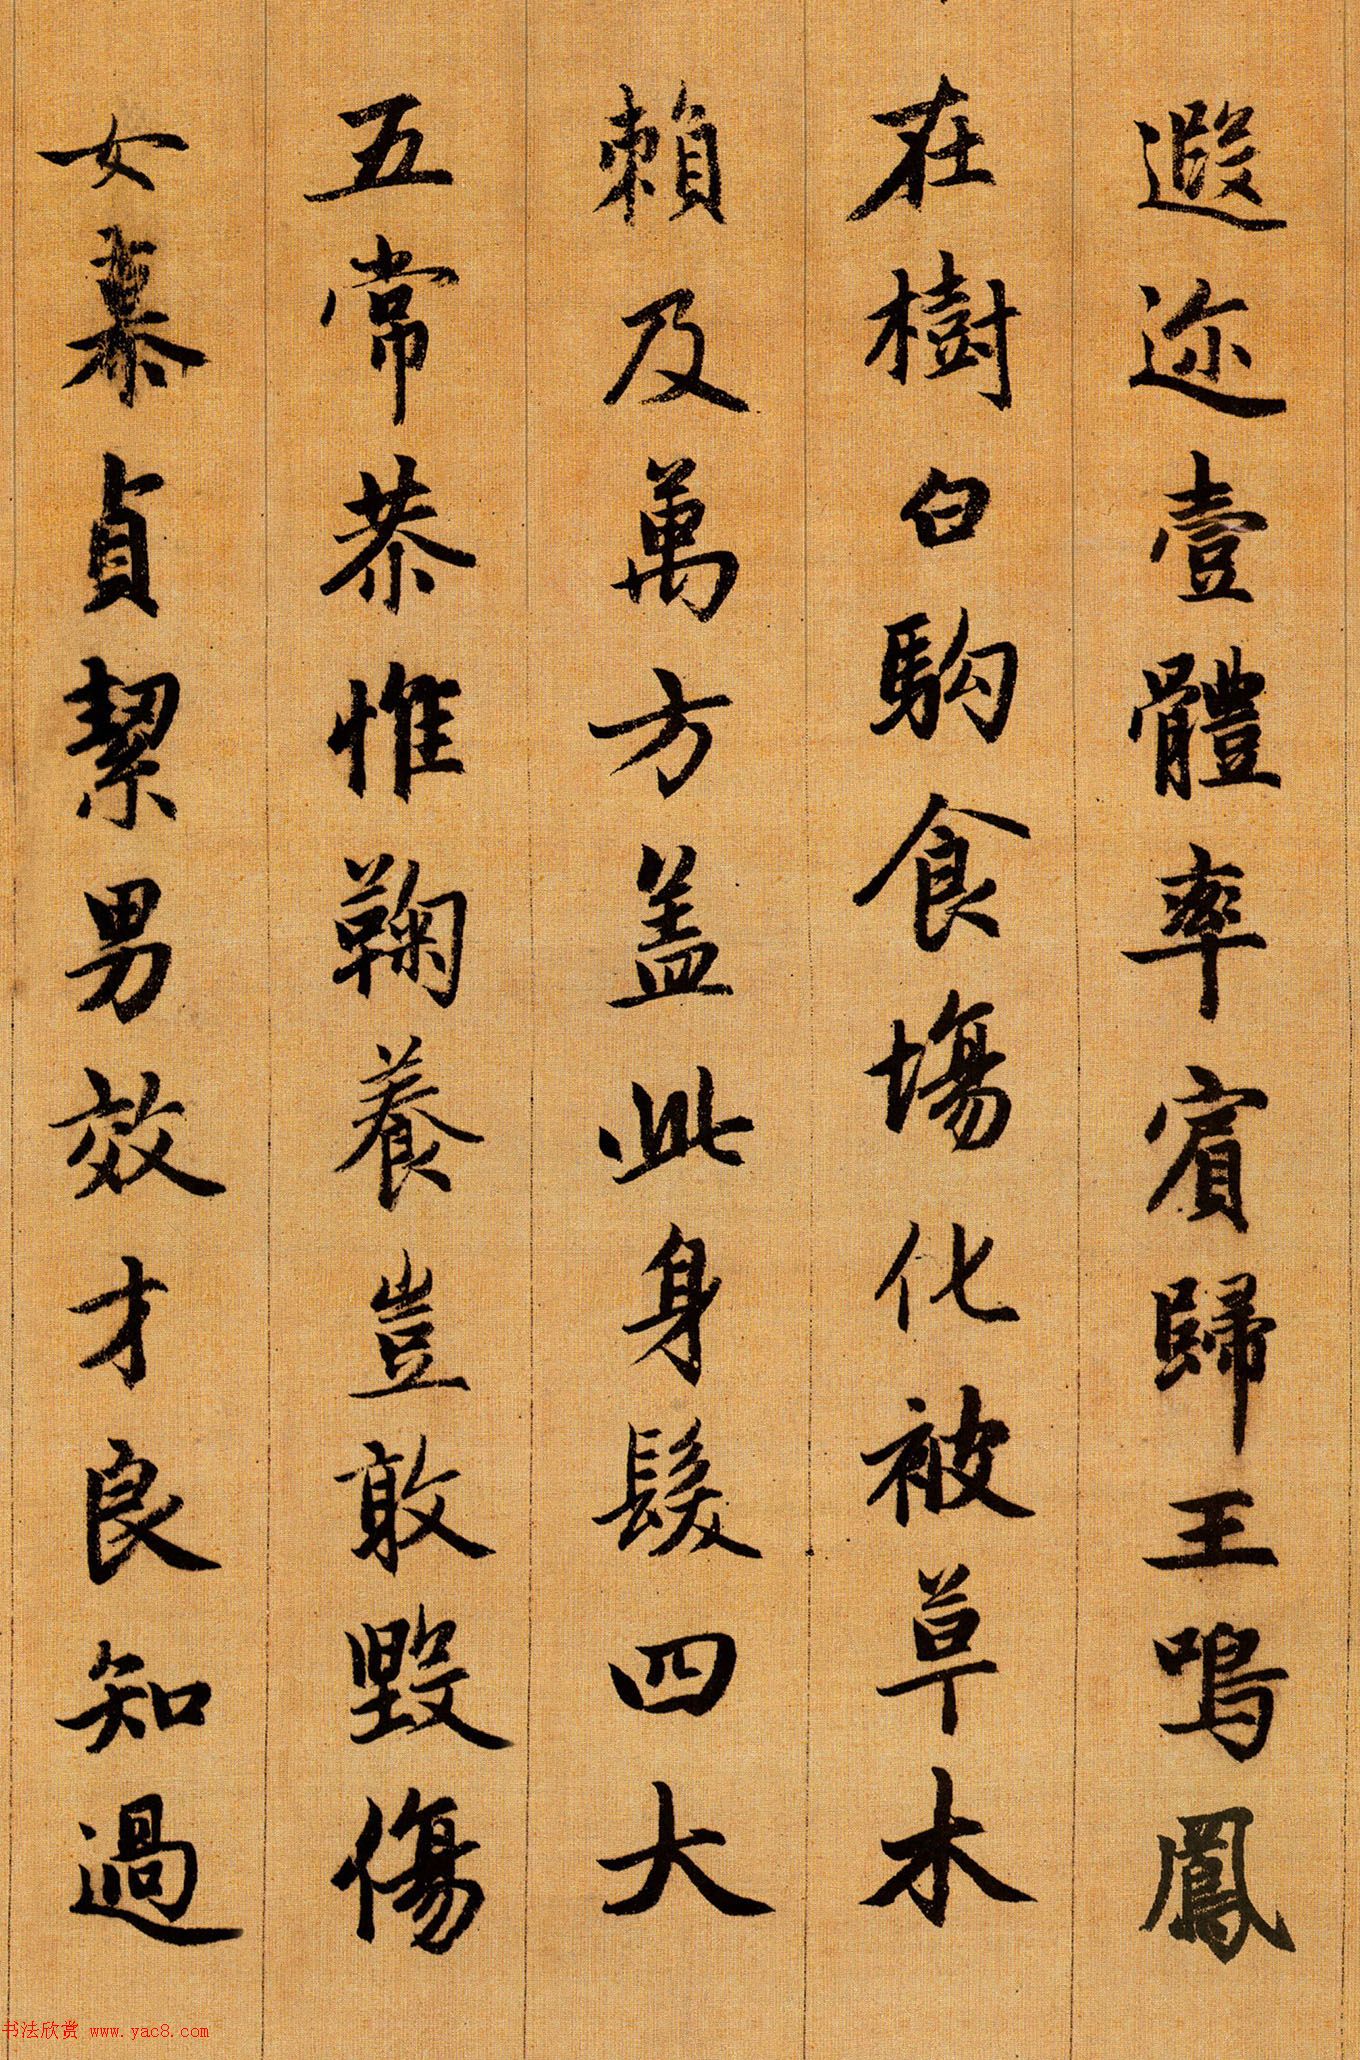 遐迩壹體率賓歸王鳴鳳
在樹白駒食場化被草木
賴及萬方盖此身髮四大
五常恭惟鞠養豈敢毀傷
女慕貞絜男效才良知過
书法欣赏 www.yac8.com